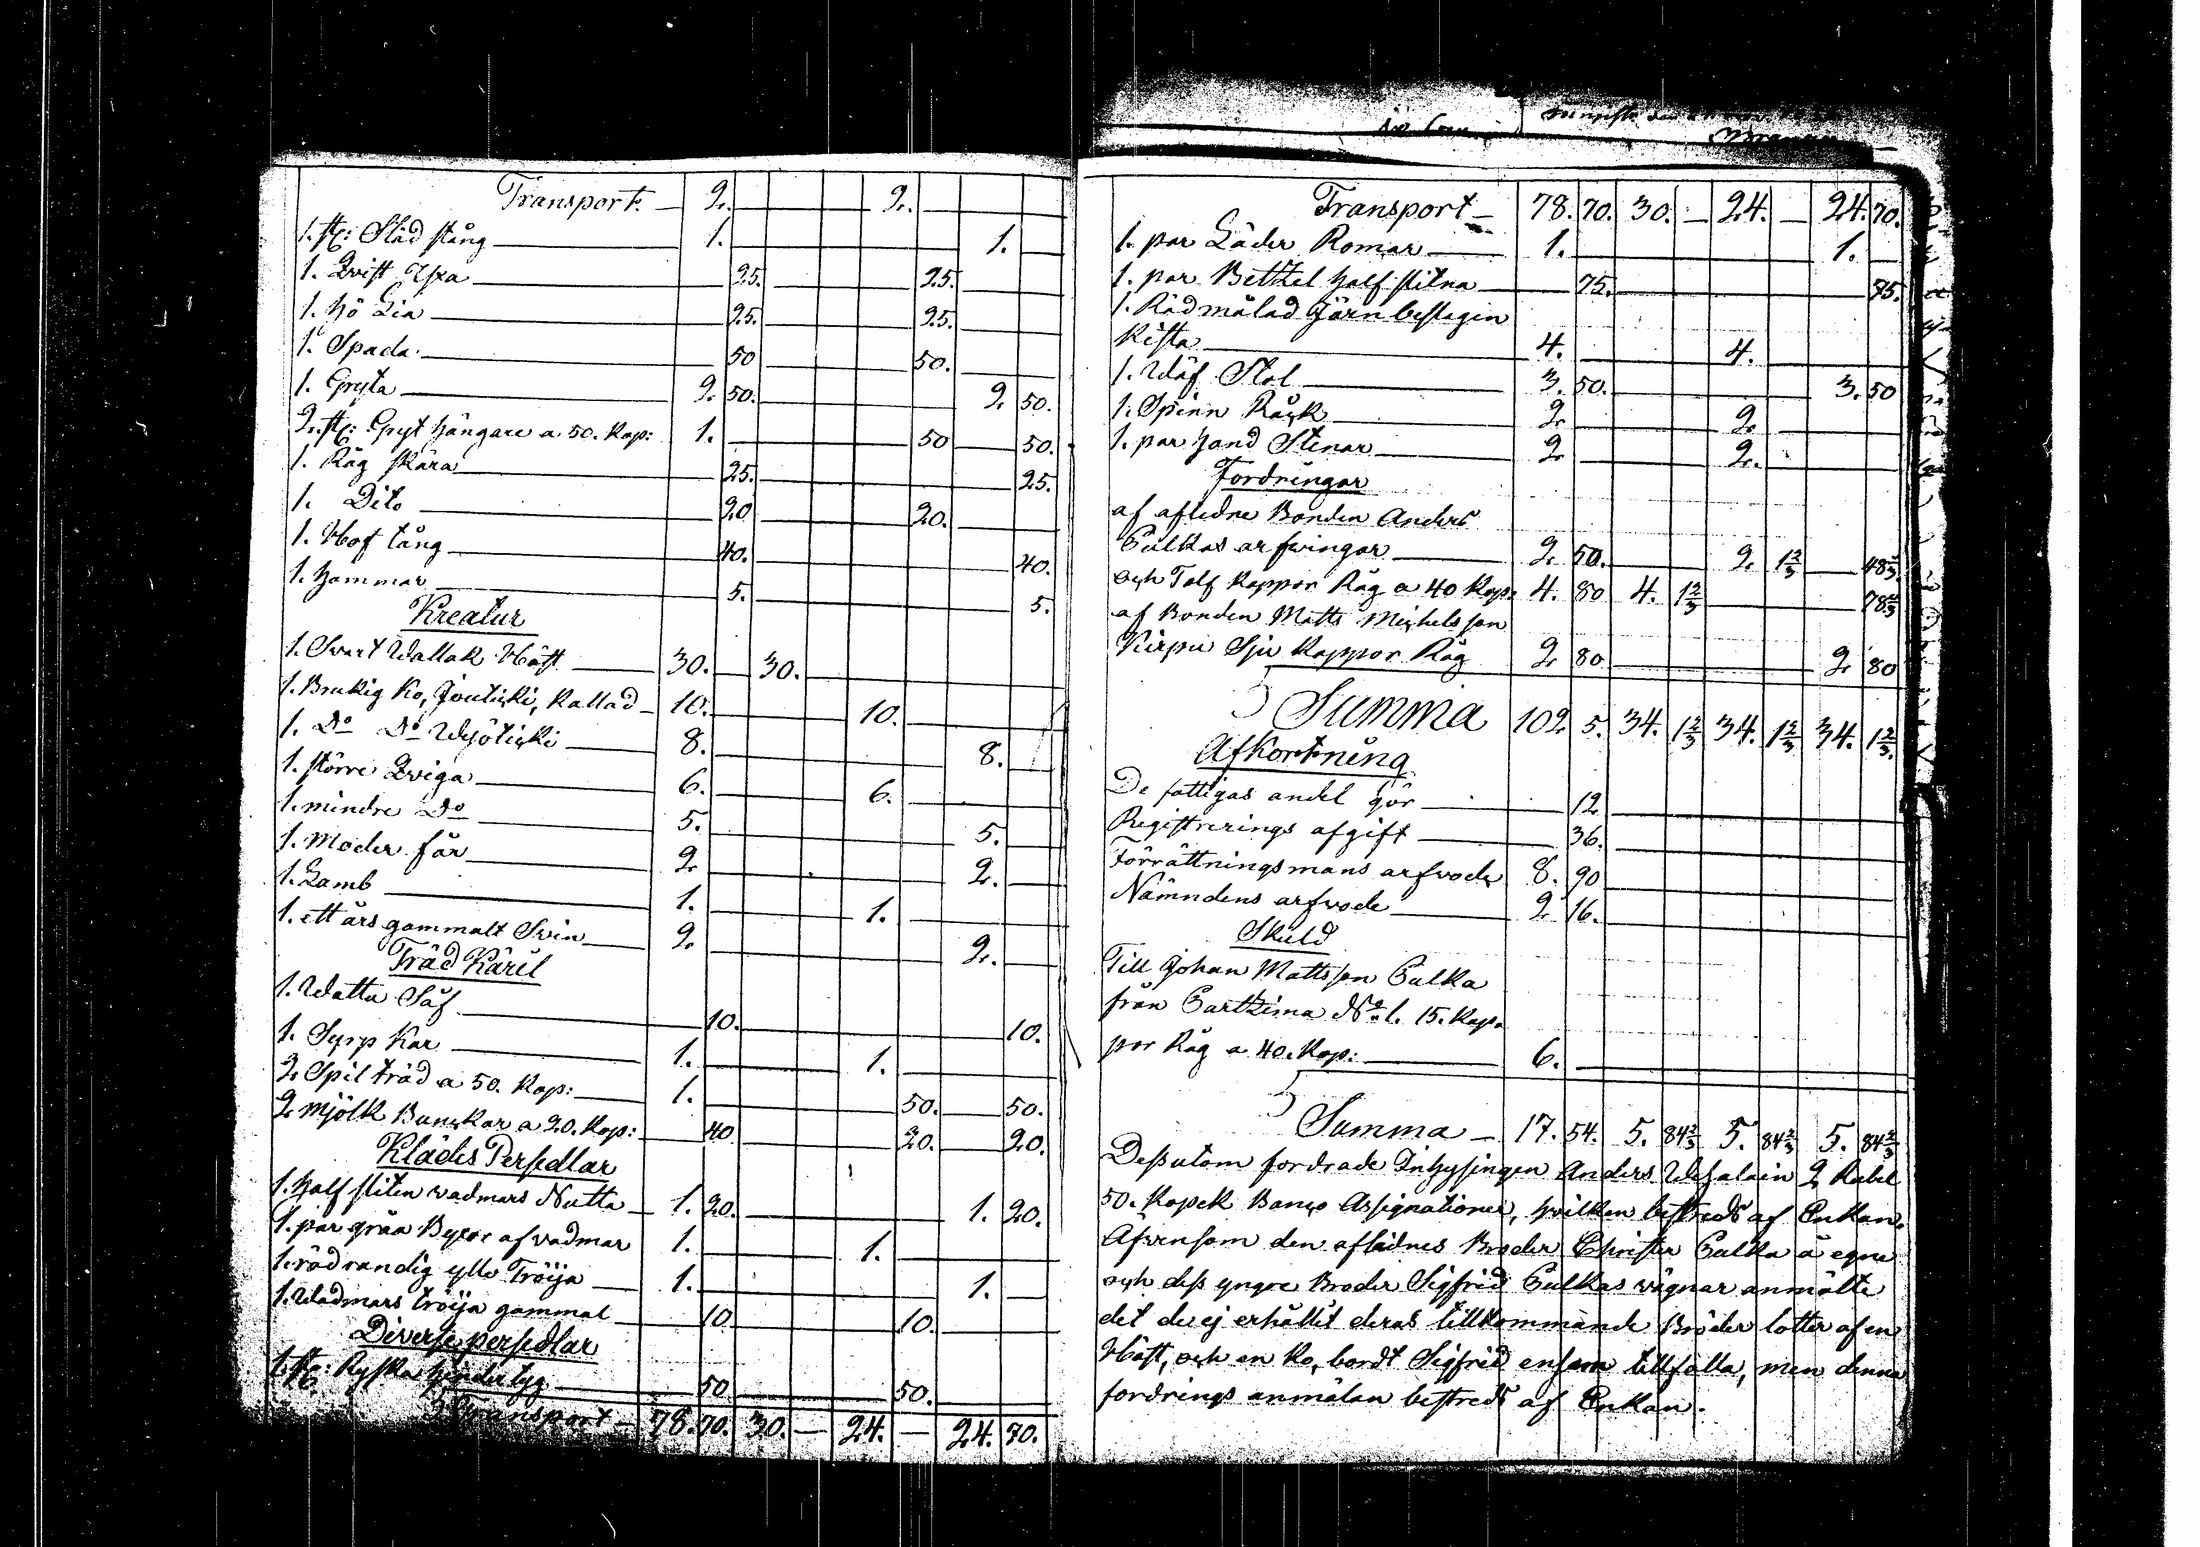 Transport. — 2. — 2. —
1. st: Släd stång — 1. — 1. —
1. Qvist Yxa — 25. — 25. —
1. Hö Lia — 25. — 25. —
1. Spada — 50 — 50. —
1. Gryta — 2. 50. — 2. 50.
2. st: Gryt hängare a 50. Kop: 1. — 50 — 50.
1. Råg skära — 25. — 25.
1. Dito — 20 — 20. —
1. Hof tång — 40. — 40.
1. Hammar — 5. — 5.
Kreatur
1. Svart Wallak Häst — 30. — 30. —
1. Brukig Ko, Jouticki, kallad — 10. — 10. —
1. Do Do Wyöticki — 8. — 8. —
1. större Qviga — 6. — 6. —
1. mindre Do — 5. — 5. —
1. Moder får — 2 — 2. —
1. Lamb — 1. — 1. —
1. ett års gammalt Svin — 2. — 2. —
Träd Käril
1. Wattu Såf — 10. — 10.
1. Syrp Kar — 1. — 1. —
2. Spil träd a 50. Kop: — 1. — 50. — 50.
2 Mjölk Bunckar a 20. Kop: — 40 — 20. — 20.
Klädes Persedlar
1. half sliten vadmars Nutta — 1. 20. — 1. 20.
1. par gråa Byxor af vadmar 1. — 1. —
1. röd randig ylle Tröija — 1. — 1. —
1. Wadmars tröija gammal — 10 — 10. —
Diverse persedlar
1. st: Ryska — 50 — 50. —
Transport — 78. 70. 30. — 24. — 24. 70.
Transport — 78. 70. 30. — 24. — 24. 70.
1. par Läder Romar — 1. — 1. —
1. par Bethzel half slitna — 75. — 75.
1. Rådmålad Järn beslagin
Kista — 4. — 4. —
1. Wäf Stol — 3. 50. — 3. 50
1. Spinn Råck — 2. — 2. —
1. par Hand Stenar — 2 — 2. —
Fordringar
af aflidne Bonden Anders
Culkas arfvingar — 2. 50. — 2. 1⅔ — 48⅓
och Tolf Kappor Råg a 40 Kop. 4. 80 4. 1⅔ — 78⅓
af Bonden Matts Michelsson
Kirpu Sju Kappor Råg 2 80 — 2 80
Summa 102. 5. 34. 1⅔ 34. 1⅔ 34. 1⅔
Afkortning
De fattigas andel gör — 12
Registrerings afgift — 36.
Förrättningsmans arfvode 8. 90
Nämndens arfvode — 2 16.
Skuld
Till Johan Mattsson Culka
från No 1. 15. Kap-
por Råg a 40. Kop: — 6. —
Summa — 17. 54. 5. 84⅔ 5. 84⅔ 5. 84⅔
Dessutom fordrade Inhysingen Anders 2 Rubel
50. Kopek Banco Assignationer, hvilken bestreds af Enkan.
Äfvensom den aflidnes Broder Christer Culka å egne
och dess yngre Broder Sigfrid Culkas vägnar anmälte
det de ej erhållit deras tillkommande Bröder lotter af en
Häst, och en Ko, bordt Sigfrid ensam tillfalla, men denna
fordrings anmälan bestreds af Enkan.